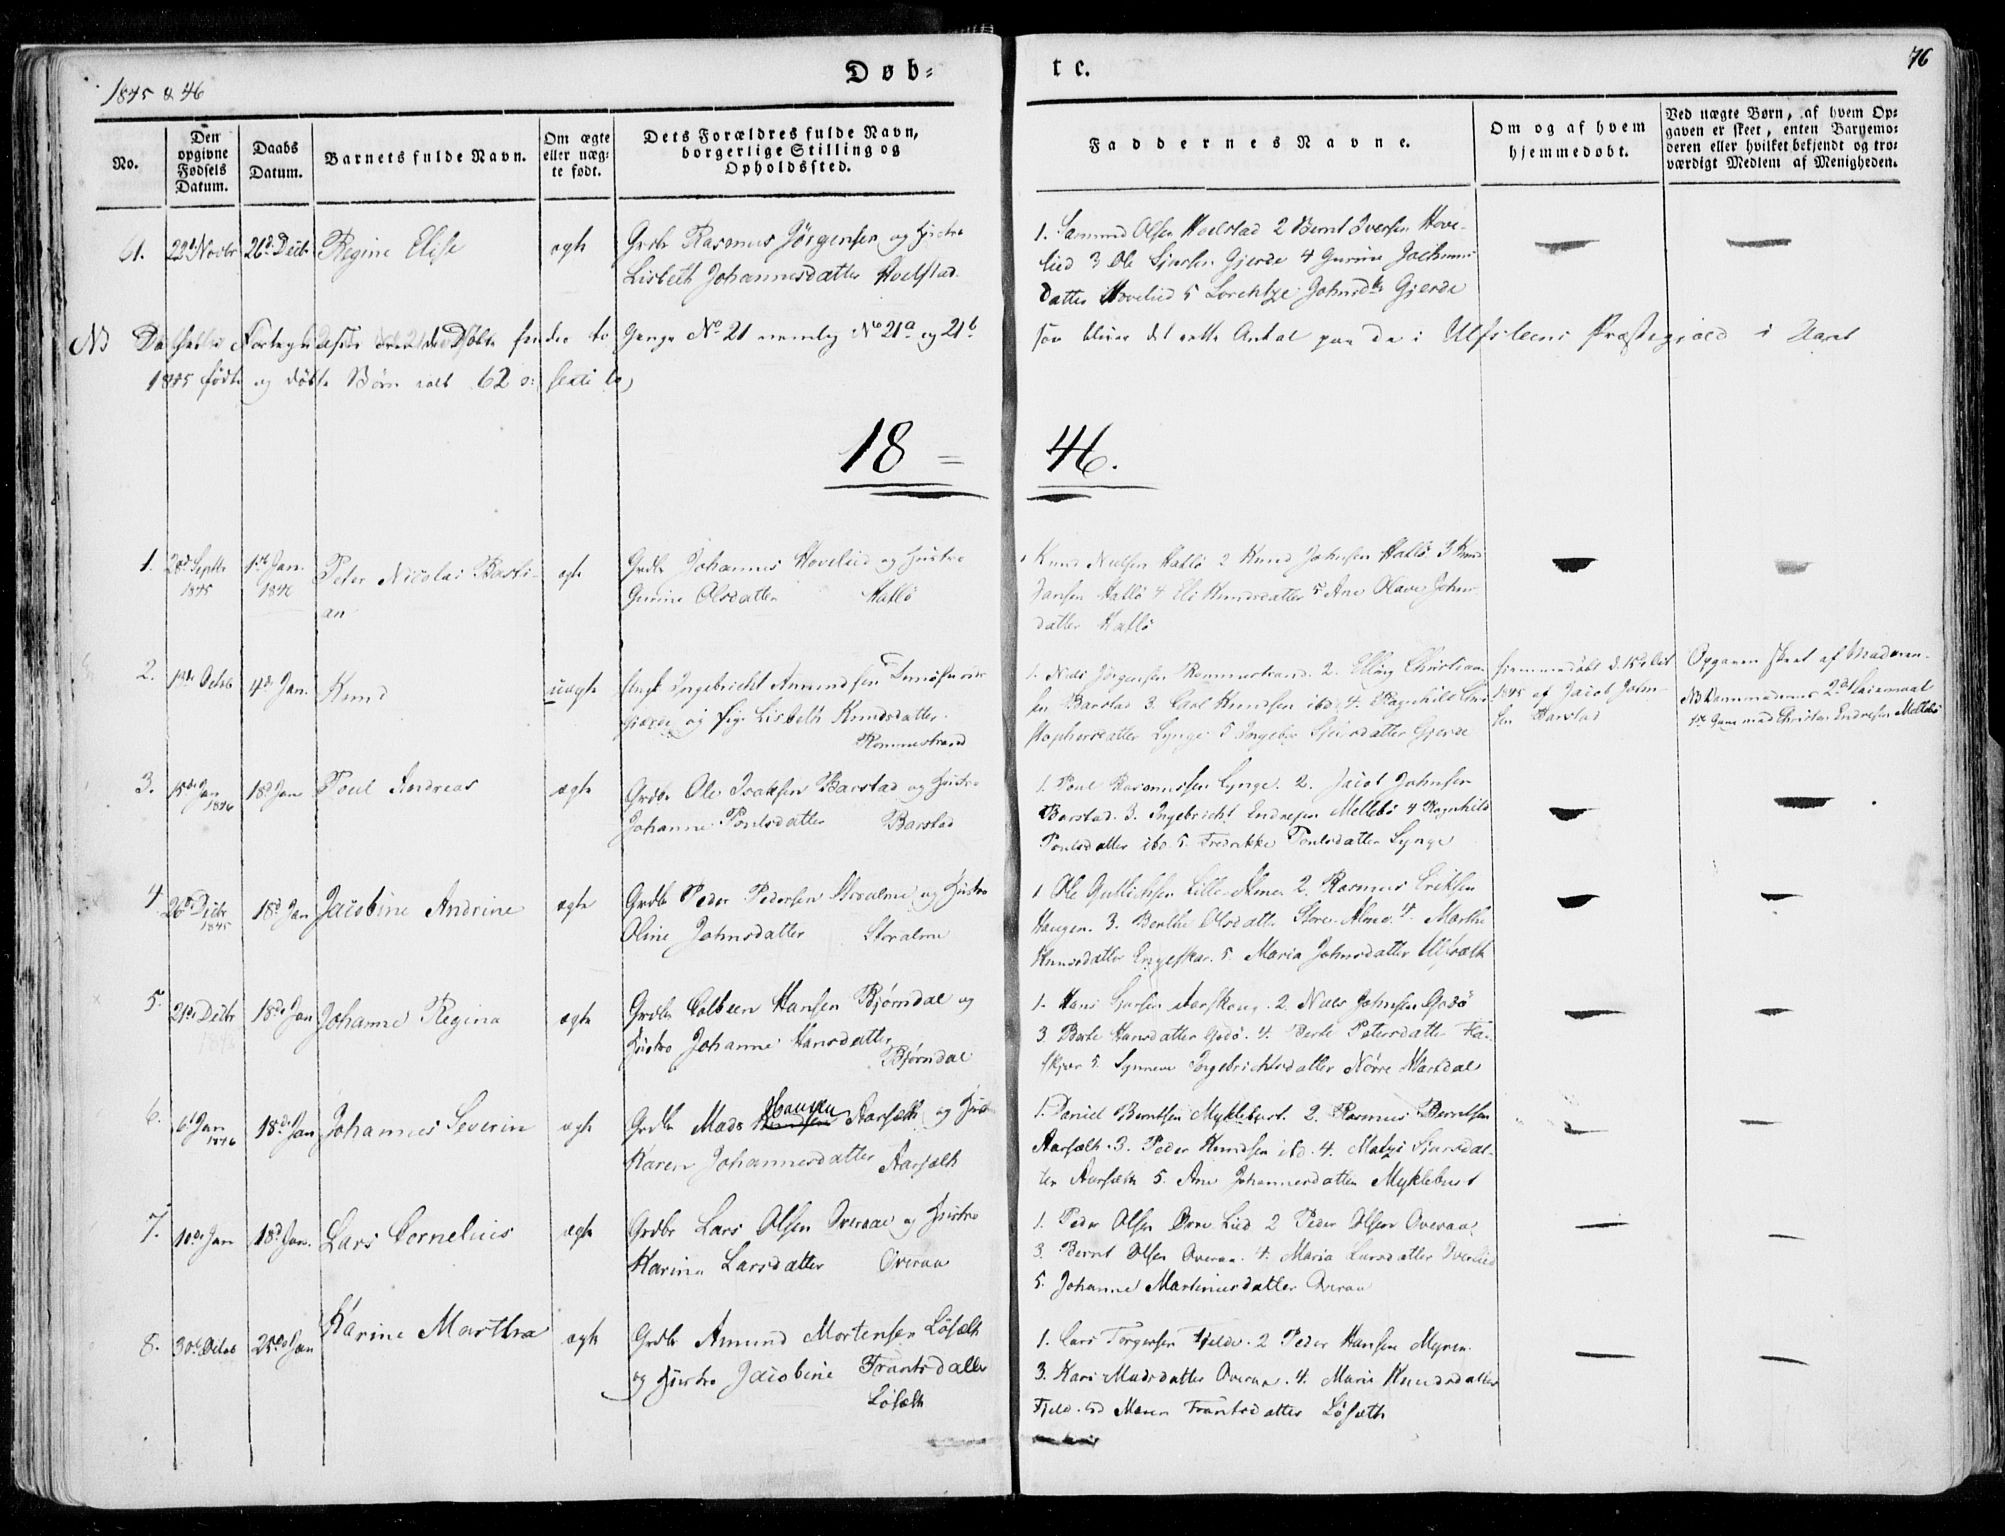 1845 & 46
Døb=
te.
76
No.
Den opgivne Fødsels Datum.
Daabs Datum.
Barnets fulde Navn.
Om ægte eller uæg-te født.
Dets Forældres fulde Navn, borgerlige Stilling og Opholdssted.
Faddernes Navne.
Om og af hvem hjemmedøbt.
Ved uægte Børn, af hvem Op-gaven er skeet, enten Barnemo-deren eller hvilket bekjendt og tro-værdigt Medlem af Menigheden.
61. 22d Novbr 26d Decbr Regine Elise ægte Grdbr Rasmus Jørgensen og Hustro
Lisbeth Johannesdatter Hoelstad
1. Samund Olsen Hoelstad 2 Bernt Iversen Hove-
lied 3 Ole Sjursen Gjerde 4 Gurine Jochums
datter Hovelied 5 Lorentze Johnsdtr Gjerde
NB Da dette Fortegnelse over de Døbte findes to Gange No 21 nemlig No 21a og 21b
saa bliver det rette Antal paa de i Ulfsteens Præstegjæld i Aaret
1845 fødte og døbte Børn 62 o: sexti to,
18=
46.
1. 28d Septbr 1845 1ste Jan. 1846 Peter Nicolai Basti-
an
ægte Grdbr Johannes Hovelied og Hustro
Gurine Olsdatter Hatlø
1 Knud Nielsen Hatlø 2 Knud Johnsen Hatlø 3 Knud
Jansen Hatlø 4 Eli Knudsdatter 5 Ane Olave Johns-
datter Hatlø
2. 13de Octob 4de Jan. Knud uægte Ungk Ingebricht Amundsen
Gjerde og Pige Lisbeth Knudsdatter
Rommestrand
1. Nils Jørgensen Rommestrand. 2. Elling Christian-
sen Barstad 3. Carl Knudsen ibd. 4. Ragnhild Chri-
stophersdatter Lynge 5 Ingebor Sjursdatter Gjerde
hjemmedøbt d. 15de Oct
1845 af Jacob John-
sen Barstad
Opgaven skeet af Moderen.
NB Qvindens 2det Leiermaal
1ste Gang med Christen Endresen Mellebø
3. 15de Jan 1846 18d Jan Poul Andreas ægte Grdbr Ole Isaksen Barstad og Hustro
Johanne Poulsdatter Barstad
1. Poul Rasmussen Lynge. 2. Jacob Johnsen
Barstad. 3. Ingebricht Endresen Mellebø 4 Ragnhild
Poulsdatter ibd 5. Fredrikke Poulsdatter Lynge
4 26de Decbr 1845 18d Jan Jacobine Andrine ægte Grdbr Peder Pedersen Storalme og Hustro
Oline Johnsdatter Storalme
1 Ole Gullichsen Lille-Alme 2. Rasmus Eriksen
Haugen. 3. Berthe Olsdatter Store-Alme. 4. Marthe
Knudsdatter Engeskar. 5. Maria Johnsdatter Ulfsæth
5. 21de Decbr 18de Jan Johanne Regina ægte Grdbr Colbeen Hansen Bjørndal og
Hustro Johanne Hansdatter
Bjørndal
1. Hans Larsen Aarskoug. 2 Niels Johnsen Godø
3. Berte Hansdatter Godø. 4. Berte Petersdatter Fla-
skjær 5. Synneve Ingebrichtsdatter Nørre Vartdal
6. 6d Jan 1846 18de Jan Johannes Severin ægte Grdbr Mads Hansen Aarsæth og Hust
Karen Johannesdatter Aarsæth
1. Daniel Berntsen Myklebust. 2. Rasmus Berntsen
Aarsæth. 3. Peder Knudsen ibd. 4. Malye Sjursdat-
ter Aarsæth 5. Ane Johannesdatter Myklebust
7. 10de Jan 18d Jan. Lars Cornelius ægte Grdbr Lars Olsen Overaae og Hustro
Karine Larsdatter Overaa
1. Peder Olsen Øvre Lied 2 Peder Olsen Overaa
3. Bernt Olsen Overaa. 4. Maria Larsdatter Overlied
5. Johanne Martinusdatter Overaa
8. 30d Octob 25de Jan Karine Martha ægte Grdbr Amund Mortensen Løsæth
og Hustro Jacobine Frantsdatter
Løsæth
1. Lars Torgersen Fjelde. 2 Peder Hansen Myren.
3. Kari Madsdatter Overaa. 4. Marie Knudsdatter
Fjeld. 5d Maren Frantsdatter Løsæth